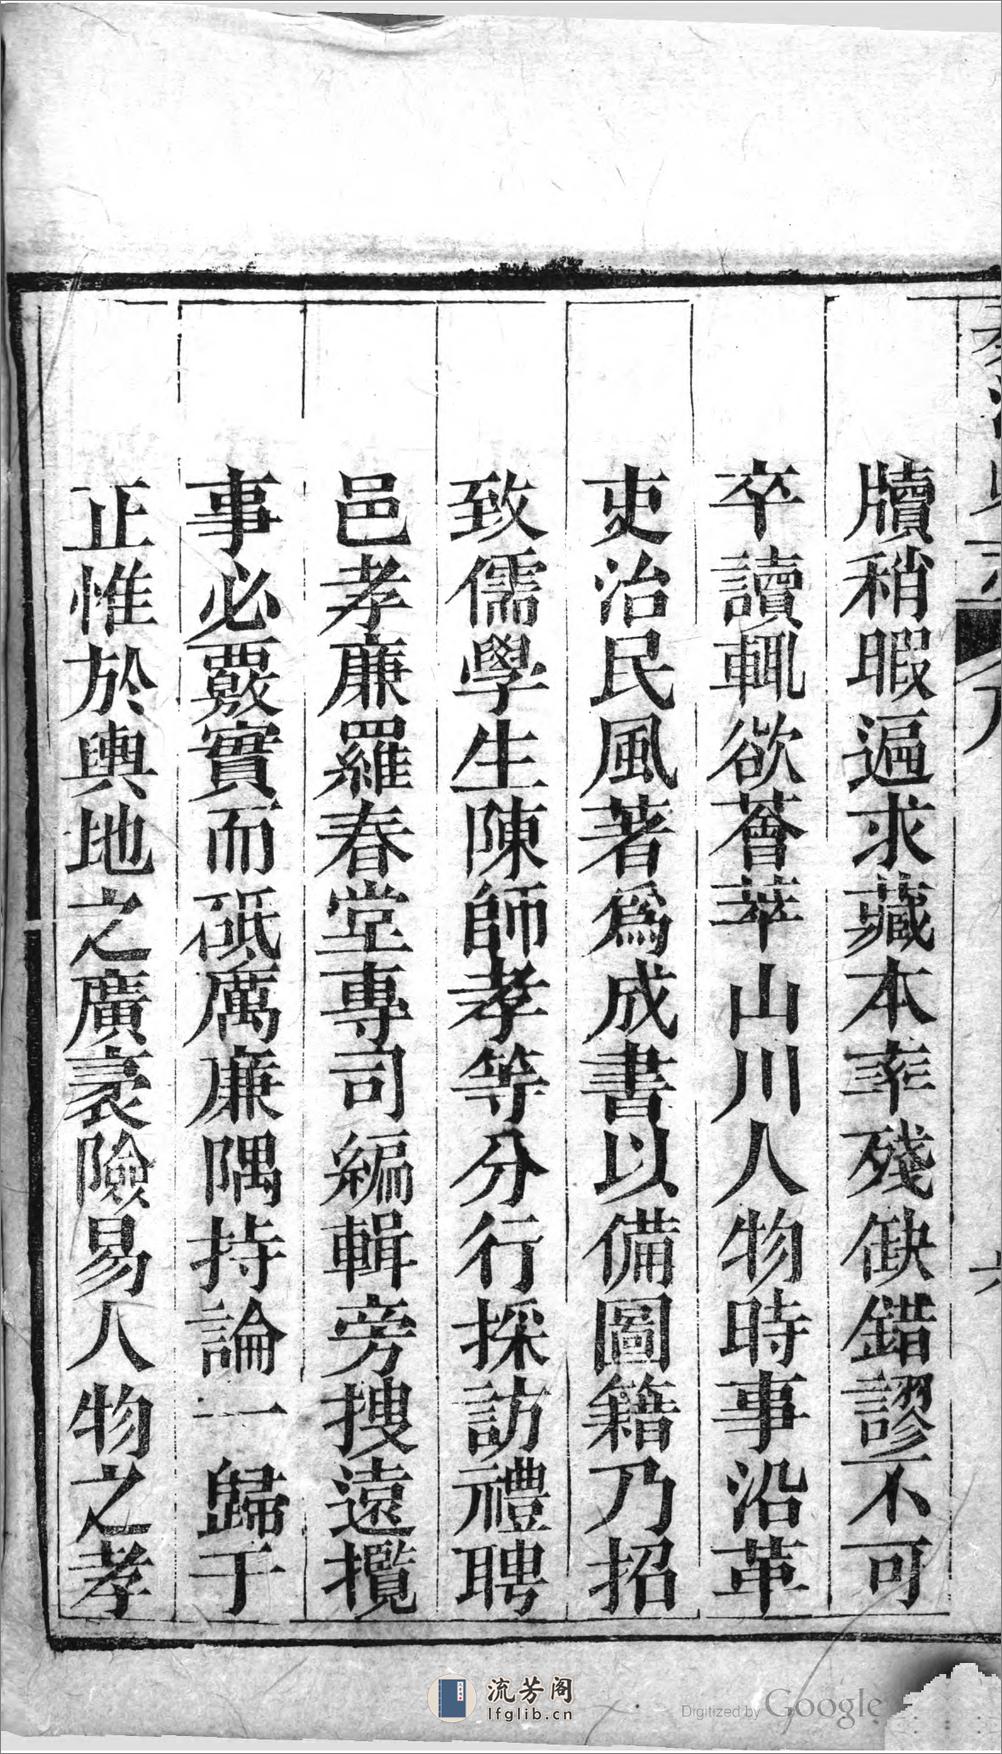 牘稍暇遍求藏本率殘缺錯謬不可
卒讀輒欲薈萃山川人物時事沿革
吏治民風著爲成書以備圖籍乃招
致儒學生陳師孝等分行採訪禮聘
邑孝廉羅春堂專司編輯旁搜遠攬
事必覈實而砥厲廉隅持論一歸于
正惟於輿地之廣袤險易人物之孝
流芳阁
lfglib.cn
Digitized by Google